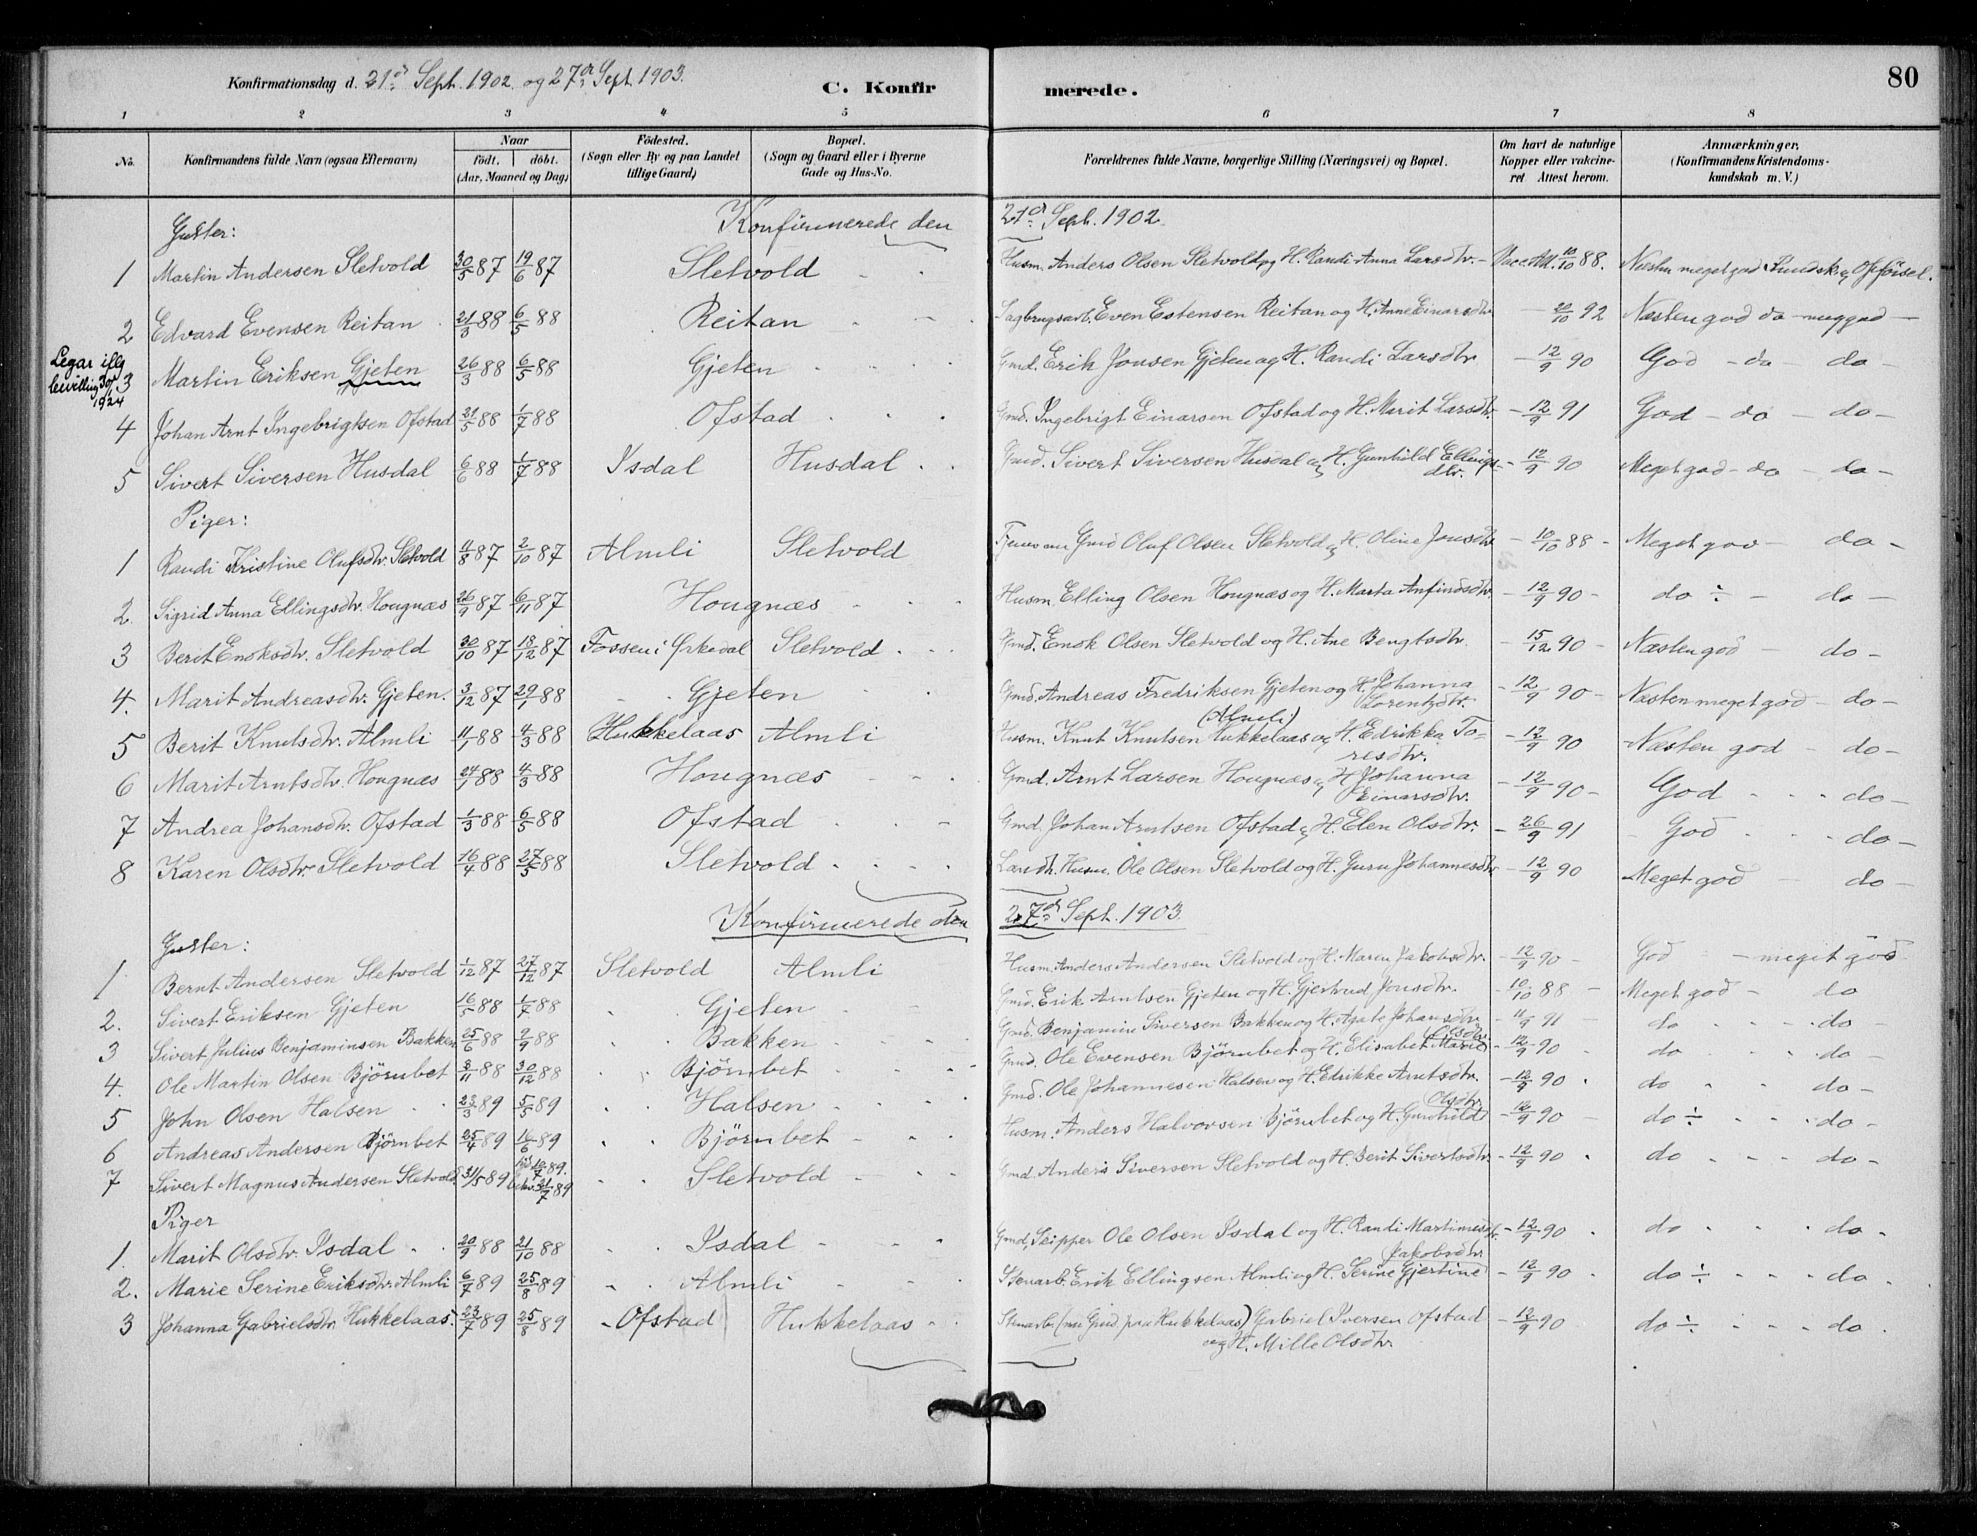 Konfirmationsdag d. 21de Sept. 1902. og 27de Sept. 1903.
C. Konfirmerede.
80
1 2 3 4 5 6 7 8
No. Konfirmandens fulde Navn (ogsaa Efternavn) Naar født. døbt. (Aar, Maaned og Dag) Fødested. (Sogn eller By og paa Landet tillige Gaard) Bopæl. (Sogn og Gaard eller i Byerne Gade og Hus-No. Forældrenes fulde Navne, borgerlige Stilling (Næringsvei) og Bopæl. Om havt de naturlige Kopper eller vakcineret Attest herom. Anmærkninger. (Konfirmandens Kristendomskundskab m. V.)
Gutter: Konfirmerede den 21de Sept. 1902.
1 Martin Andersen Sletvold 30/5 87 19/6 87 Sletvold Husm. Anders Olsen Sletvold og H. Randi Anna Larsdtr. - Vacc. Att. 10/10 88. Næsten meget god Kundsk. og Opførsel.
2 Edvard Evensen Reitan 21/3 88 6/5 88 Reitan Sagbrugsarb. Even Estensen Reitan og H. Anne Einarsdtr - 20/10 92 Næsten god do - meg god -
Legar iflg bevilling 30/9 1924
3 Martin Eriksen Gjeten 26/3 88 6/5 88 Gjeten Gmd. Erik Jonsen Gjeten og H. Randi Larsdtr. - 12/9 90 God - do - do -
4 Johan Arnt Ingebrigtsen Ofstad 21/5 88 1/7 88 Ofstad Gmd. Ingebrigt Einarsen Ofstad og H. Marit Larsdtr. - 12/9 91 God - do - do -
5 Sivert Siversen Husdal 6/6 88 1/7 88 Ysdal Husdal Gmd. Sivert Siversen Husdal og H. Gunhild Ellingsdtr. - 12/9 90 Meget god - do - do -
Piger:
1 Randi Kristine Olufsdtr. Sletvold 11/8 87 2/10 87 Almli Sletvold nu Gmd Oluf Olsen Sletvold og H. Oline Jonsdtr - 10/10 88 - Meget god - do -
2 Sigrid Anna Ellingsdtr. Hougnæs 26/9 87 6/11 87 Hougnæs Husm. Elling Olsen Hougnæs og H. Marta Anfindsdtr. - 12/9 90 - do ÷ - do -
3 Berit Enoksdtr. Sletvold 30/10 87 18/12 87 Fossen i Ørkedal Sletvold Gmd. Enok Olsen Sletvold og H. Ane Bengtsdtr. - 15/12 90 - Næsten god - do -
4. Marit Andreasdtr. Gjeten. 3/12 87 29/1 88 Gjeten Gmd. Andreas Fredriksen Gjeten og H. Johanna Lorentsdtr. - 12/9 90 - Næsten meget god - do -
5 Berit Knutsdtr. Almli 11/1 88 4/3 88 Hukkelaas Almli Husm. Knut Knutsen Hukkelaas (Almli) og H. Edrikke Toresdtr. - 12/9 90 Næsten god - do -
6 Marit Arntsdtr. Hougnæs 24/1 88 4/3 88 Hougnæs Gmd. Arnt Larsen Hougnæs og H. Johanna Einarsdtr. - 12/9 90 - God - do -
7 Andrea Johansdtr. Ofstad 1/3 88 6/5 88 Ofstad Gmd. Johan Arntsen Ofstad og H. Elen Olsdtr. - 26/9 91 - God do -
8 Karen Olsdtr. Sletvold 16/4 88 27/5 88 Sletvold Husm. Ole Olsen Sletvold og H. Guru Johannesdtr - 12/9 90 Meget god - do -
Konfirmerede den 27de Sept. 1903.
Gutter:
1. Bernt Andersen Sletvold 1/12 87 27/12 87 Sletvold Almli Husm. Anders Andersen Sletvold og H. Maren Jakobsdtr. - 12/9 90 - God - meget god
2. Sivert Eriksen Gjeten 16/5 88 1/7 88 Gjeten Gmd. Erik Arntsen Gjeten og H. Gjertrud Jonsdtr. - 10/10 88 - Meget god - do
3 Sivert Julius Benjaminsen Bakken 25/6 88 2/9 88 Bakken Gmd. Benjamin Siversen Bakken og H. Agate Johansdtr - 11/9 91 - do do
4. Ole Martin Olsen Bjørnbet 3/11 88 30/12 88 Bjørnbet Gmd. Ole Evensen Bjørnbet og H. Elisabet Marie Olsdtr. - 12/9 90 do do -
5 John Olsen Halsen 23/3 89 5/5 89 Halsen Gmd. Ole Johannesen Halsen og H. Edrikke Arntsdtr. - 12/9 90 do do -
6 Andreas Andersen Bjørnbet 25/4 89 16/6 89 Bjørnbet Husm. Anders Halvorsen Bjørnbet og H. Gunhild Olsdtr. - 12/9 90 do ÷ do -
7 Sivert Magnus Andersen Sletvold. 31/5 89 89. 21/7 89 Sletvold Gmd. Anders Siversen Sletvold og H. Berit Sivertsdtr. - 12/9 90 do do -
Piger
1. Marit Olsdtr. Ysdal 20/9 88 21/10 88 Ysdal Gmd, Skipper Ole Olsen Ysdal og H. Randi Martinesdtr. - 12/9 90 do do.
2. Marie Serine Eriksdtr. Almli 6/7 89 25/8 89 Almli Stenarb. Erik Ellingsen Almli og H. Serine Gjertine Jakobsdtr. - 12/9 90 do ÷ do.
3 Johanna Gabrielsdtr. Hukkelaas. 23/7 89 25/8 89 - Ofstad Hukkelaas Stenarb. (nu Gmd paa Hukkelaas) Gabriel Iversen Ofstad og H. Mille Olsdtr. - 12/9 90 do ÷ do.